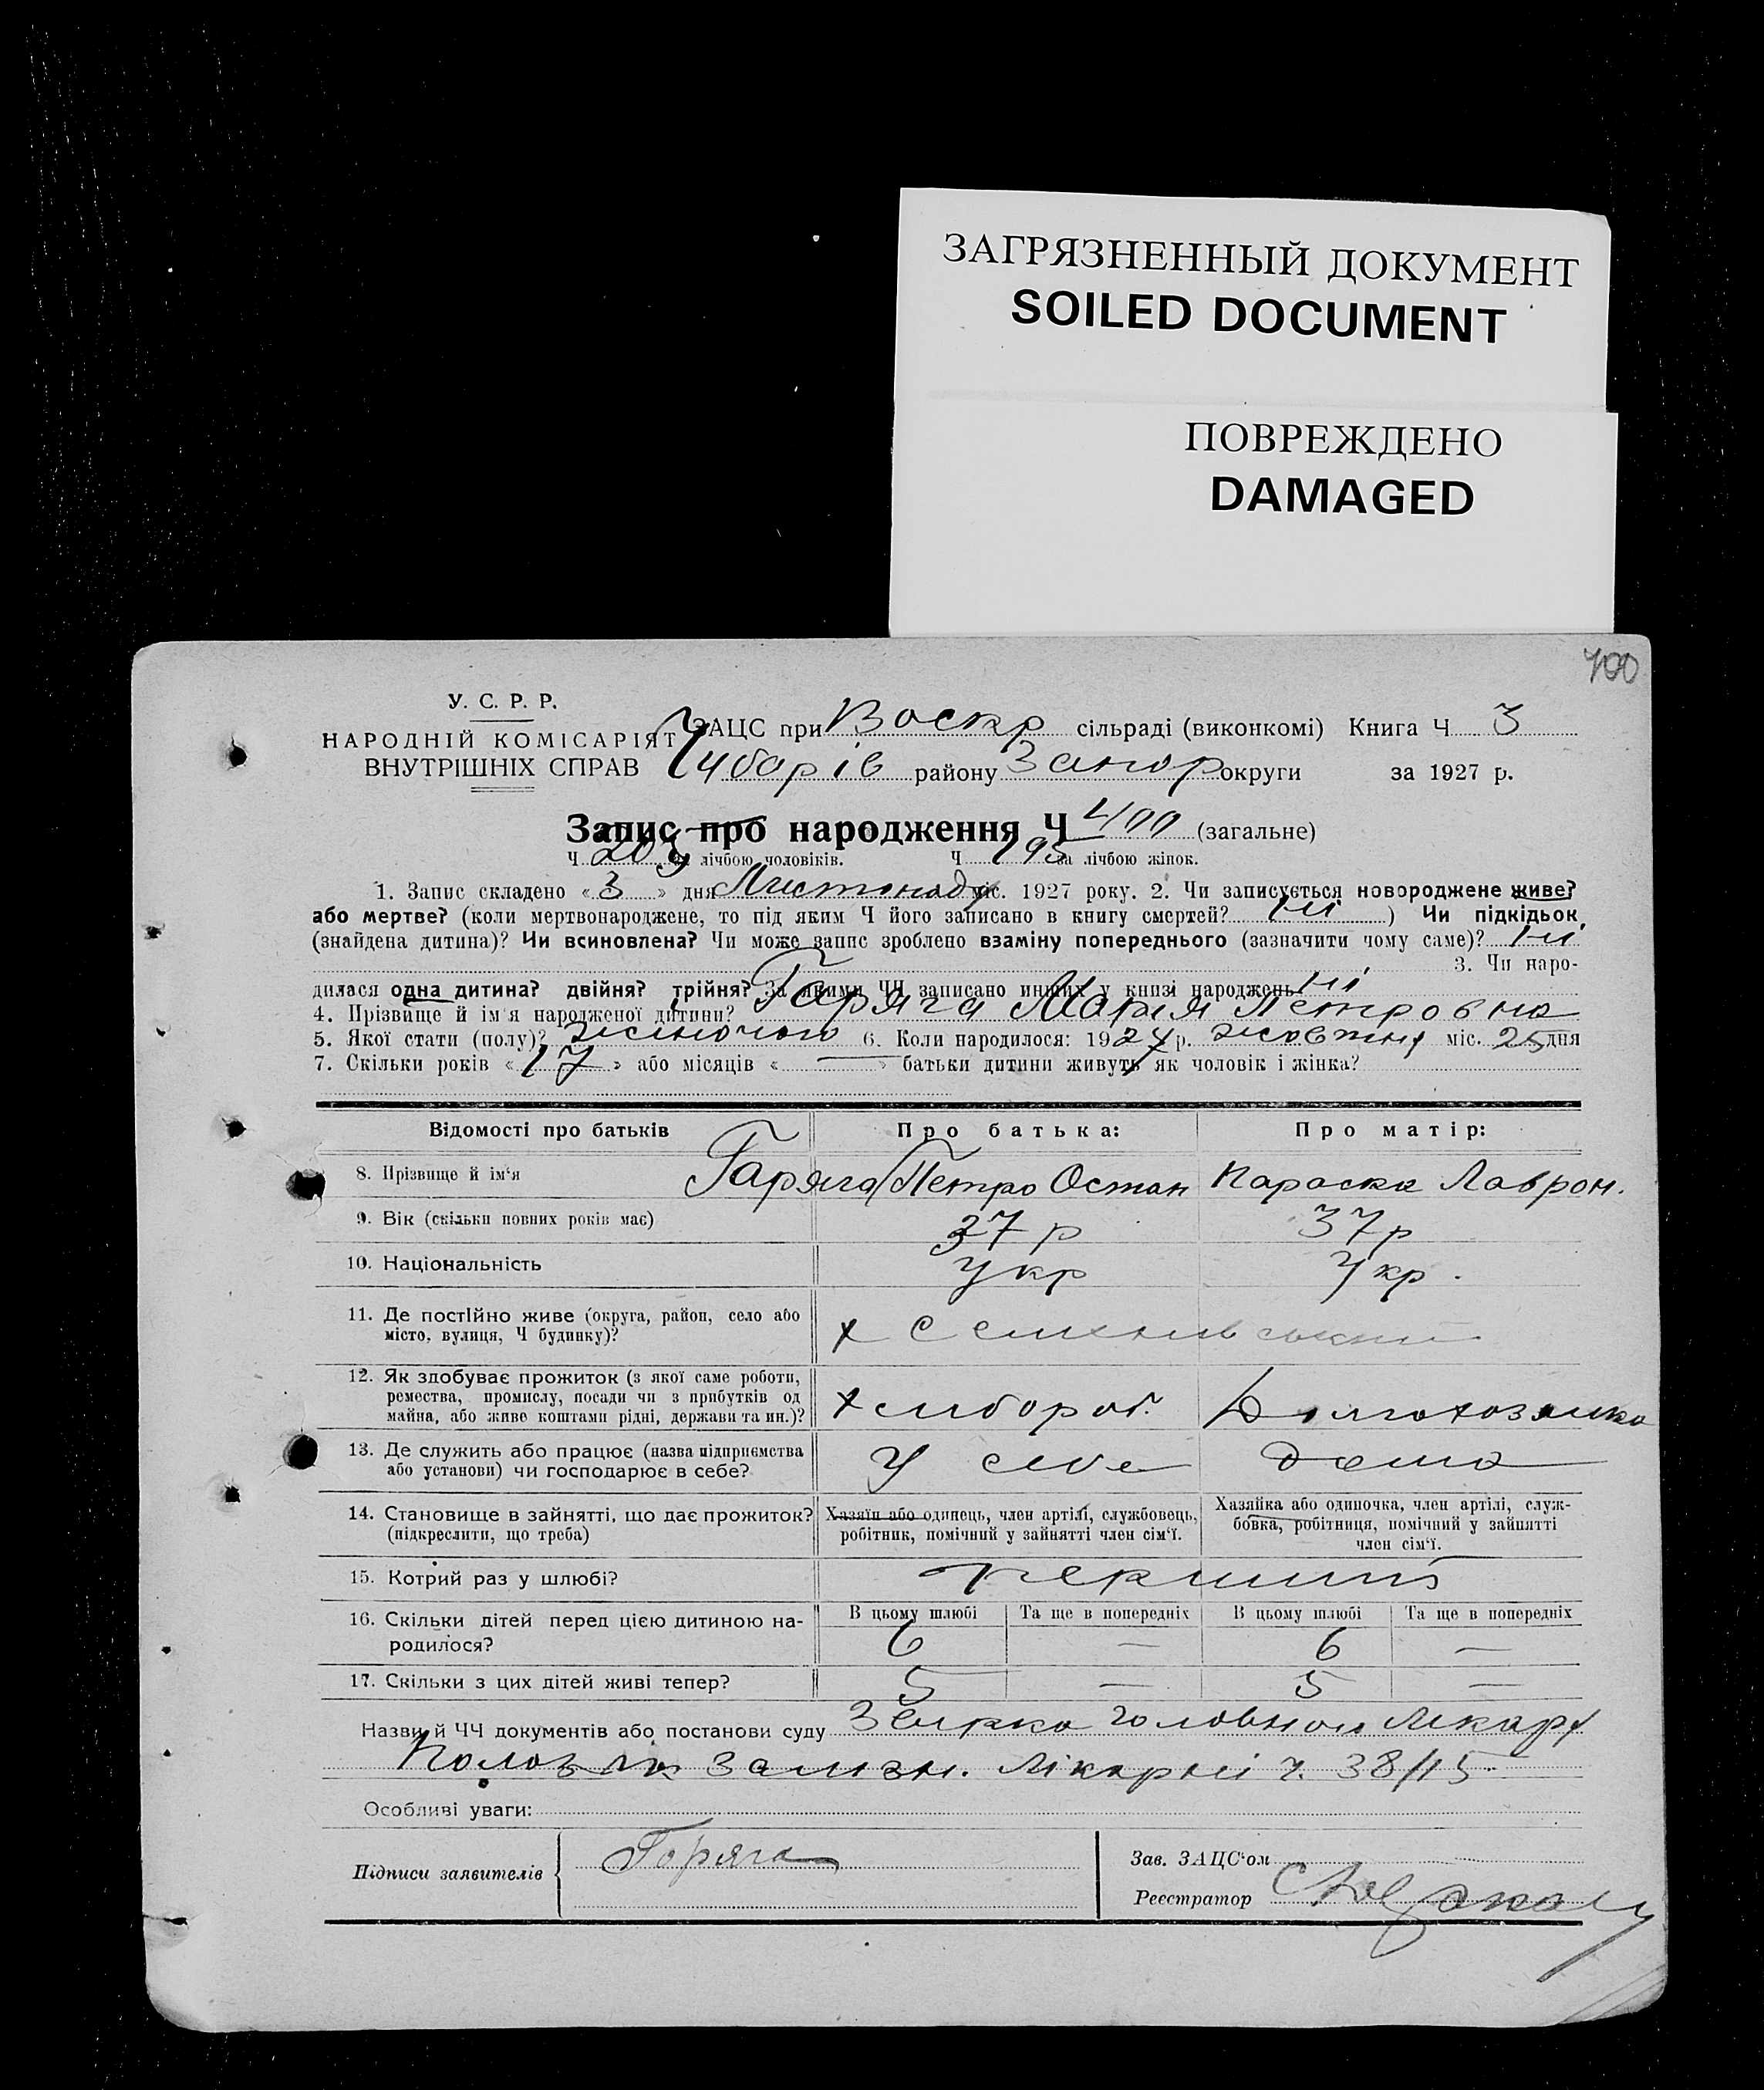 ЗАГРЯЗНЕННЫЙ ДОКУМЕНТ
SOILED DOCUMENT
ПОВРЕЖДЕНО
DAMAGED
400
У. С. Р. Р.
НАРОДНІЙ КОМІСАРІЯТ
ВНУТРІШНІХ СПРАВ
ЗАЦС при Воскр сільраді (виконкомі) Книга Ч 3
Чубарів району Запор округи за 1927 р.
Запис про народження Ч 400 (загальне)
Ч 205 за лічбою чоловіків. Ч 195 за лічбою жінок.
1. Запис складено « 3 » дня Листопаду міс. 1927 року. 2. Чи записується новороджене живе?
або мертве? (коли мертвонароджене, то під яким Ч його записано в книгу смертей? ні ) Чи підкідьок
(знайдена дитина)? Чи всиновлена? Чи може запис зроблено взаміну попереднього (зазначити чому саме)? ні
3. Чи наро-
дилася одна дитина? двійня? трійня? За якими ЧЧ записано инших у книзі народжень ні
4. Прізвище й ім'я народженої дитини? Гаряга Марія Петровна
5. Якої стати (полу)? жіночого 6. Коли народилося: 1927 р. жовтня міс. 25 дня
7. Скільки років « 17 » або місяців « — » батьки дитини живуть як чоловік і жінка?
Відомості про батьків Про батька: Про матір:
8. Прізвище й ім'я Гаряга Петро Остап Параска Лаврон.
9. Вік (скільки повних років має) 37 р 37 р
10. Національність Укр Укр.
11. Де постійно живе (округа, район, село або
місто, вулиця, Ч будинку)? х
12. Як здобуває прожиток (з якої саме роботи,
ремества, промислу, посади чи з прибутків од
майна, або живе коштами рідні, держави та ин.)? Хлибороб. Домохозяйка
13. Де служить або працює (назва підприємства
або установи) чи господарює в себе? У себе дома
14. Становище в зайнятті, що дає прожиток?
(підкреслити, що треба)
Хазяїн або одинець, член артілі, службовець,
робітник, помічний у зайнятті член сім'ї.
Хазяйка або одиночка, член артілі, служ-
бовка, робітниця, помічний у зайнятті
член сім'ї.
15. Котрий раз у шлюбі? перший
16. Скільки дітей перед цією дитиною на-
родилося?
В цьому шлюбі Та ще в попередніх В цьому шлюбі Та ще в попередніх
6 — 6 —
17. Скільки з цих дітей живі тепер? 5 — 5 —
Назви й ЧЧ документів або постанови суду Звірка головного лікаря
Залізн. Лікарні ч. 38/15
Особливі уваги:
Підписи заявителів Горяга
Зав. ЗАЦС'ом
Реєстратор